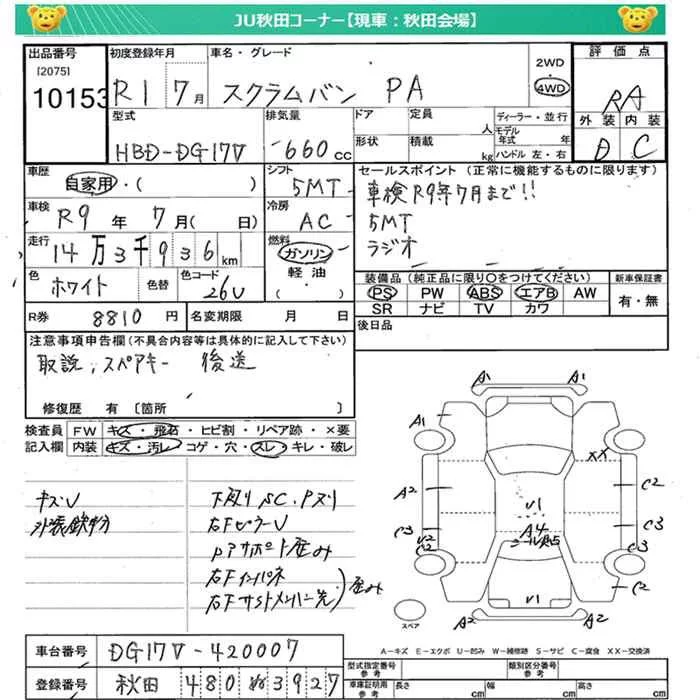 JU秋田コーナー【現車：秋田会場】
出品番号
[2075]
10153
初度登録年月
R1 7月
車名・グレード
スクラムバン PA
2WD
・
4WD
評価点
RA
外装 内装
D C
型式
HBD-DG17V
排気量
660cc
ドア
形状
定員
人
積載
kg
ディーラー・並行
モデル年式 年
ハンドル 左・右
車歴
自家用・( )
シフト
5MT
セールスポイント (正常に機能するものに限ります)
車検R9年7月まで!!
5MT
ラジオ
車検
R9年 7月( 日)
冷房
AC
走行
14万3千936km
燃料
ガソリン
軽油・
( )
色
ホワイト
色替
色コード
26U
装備品 (純正品に限り〇をつけてください)
PS PW ABS エアB AW
SR ナビ TV カワ
新車保証書
有・無
R券 8810円
名変期限 月 日
後日品
注意事項申告欄 (不具合内容等は具体的に記入して下さい)
取説、スペアキー 後送
修復歴 有 〔箇所 〕
検査員
記入欄
FW キズ・飛石・ヒビ割・リペア跡・×要
内装 キズ・汚レ・コゲ・穴・スレ・キレ・破レ
キズU
外装鉄粉
下廻りSC.Pヌリ
右FピラーU
右Fインパネ
右Fサイドメンバー先
歪み
A1 A1
A1
XX
A2
C2
U1
A4
C3
U2
C2
C3
C2
U1
A2 A2
スペア
A－キズ E－エクボ U－凹み W－補修跡 S－サビ C－腐食 XX－交換済
車台番号
DG17V-420007
登録番号
秋田 480 ぬ 3927
型式指定番号
参考
類別区分番号
参考
車庫証明用
参考
長さ cm
幅 cm
高さ cm